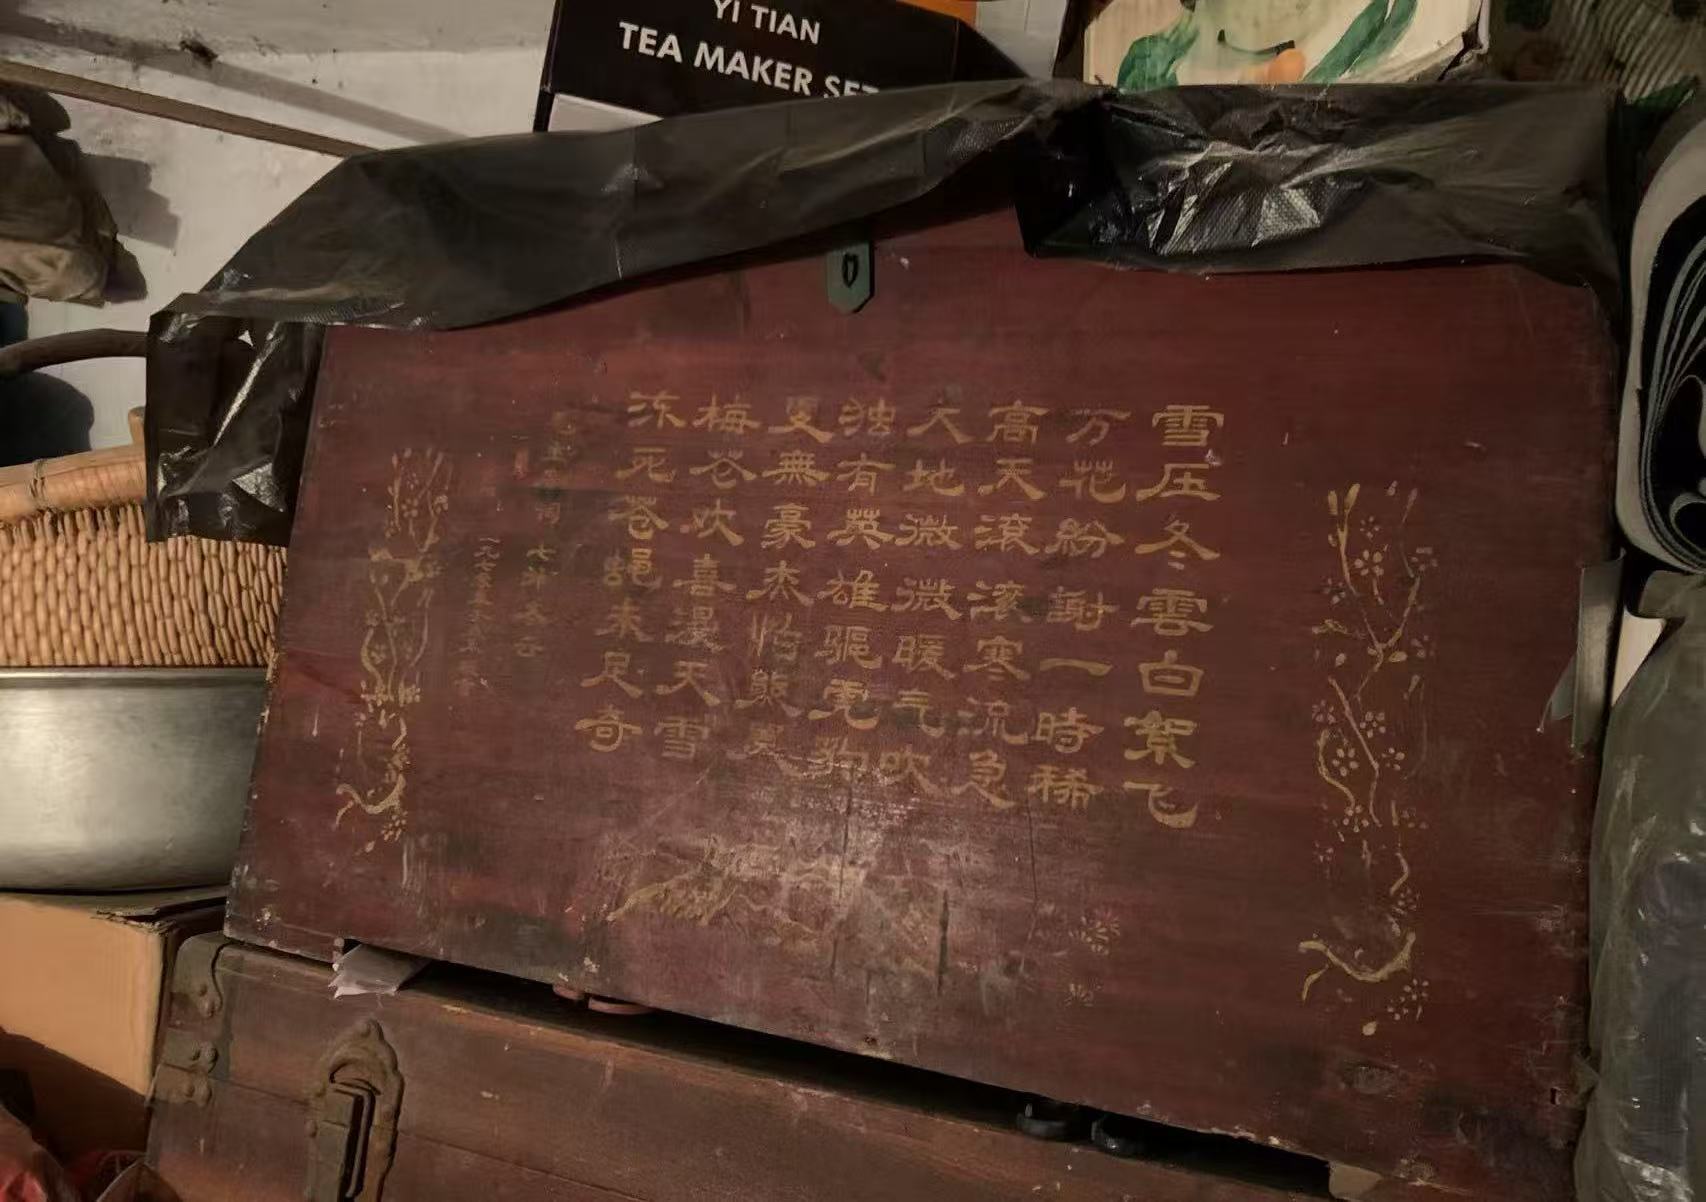 YI TIAN
TEA MAKER SET
雪压冬雲白絮飞
万花紛謝一時稀
高天滚滚寒流急
大地微微暖气吹
独有英雄驅虎豹
更無豪杰怕熊
梅花欢喜漫天雪
冻死苍蝇未足奇
七律 冬云